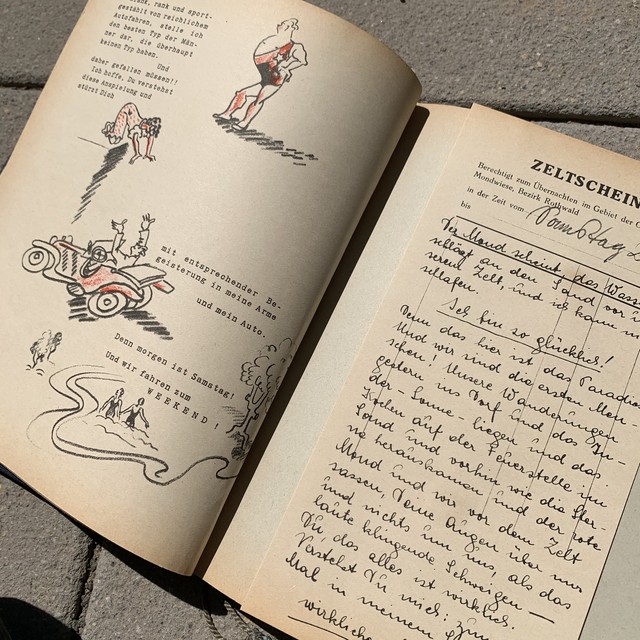 schlank, rank und sport-
gestählt von reichlichem
Autofahren, stelle ich
den besten Typ der Män-
ner dar, die überhaupt
keinen Typ haben.
Und
daher gefallen müssen!!
Ich hoffe, Du verstehst
diese Anspielung und
stürzt Dich
mit entsprechender Be-
geisterung in meine Arme
und mein Auto.
Denn morgen ist Samstag!
Und wir fahren zum
WEEKEND!
ZELTSCHEIN
Berechtigt zum Übernachten im Gebiet der
Mondwiese, Bezirk Rothwald
in der Zeit vom
bis
Der Mond scheint, das Wass
schlägt an den Sand vor
serem Zelt, und ich kann
schlafen.
Ich bin so glücklich!
Denn das hier ist das Paradies
Und wir sind die ersten Men-
schen! Unsere Wanderungen
gestern ins Dorf und das In-
der-Sonne-liegen und das
Kochen auf der Feuerstelle im
Sand und vorhin, wie die Ster-
ne herauskamen und der rote
Mond und wir vor dem Zelt
sassen, Deine Augen über mir
und nichts um uns, als das
laute klingende Schweigen —
Du, das alles ist wirklich.
Verstehst Du mich: zum
Mal in meinem
wirkliche